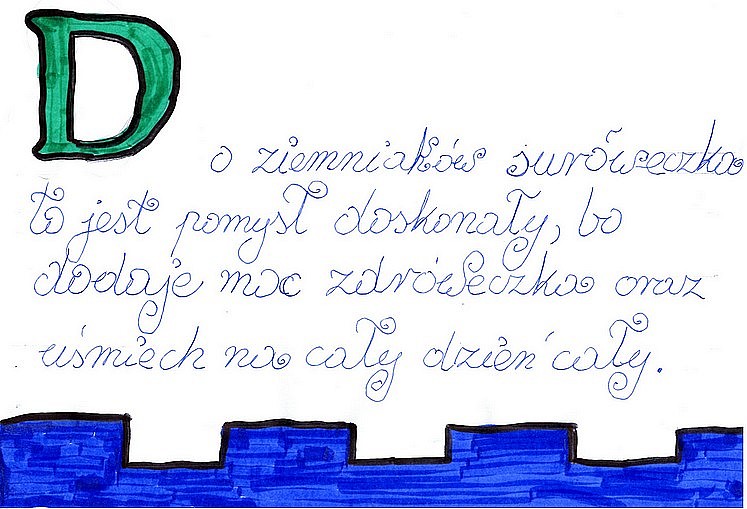 Do ziemniaków suróweczka
to jest pomysł doskonały, bo
dodaje moc zdróweczka oraz
uśmiech na cały dzień cały.